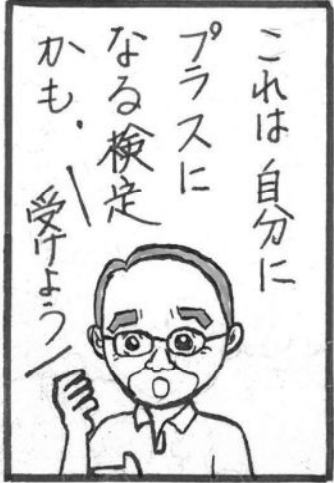 これは自分に
プラスに
なる検定
かも.
受けよう